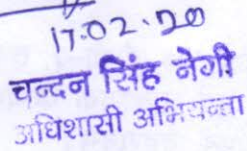 17.02.20
चन्दन सिंह नेगी
अधिशासी अभियन्ता